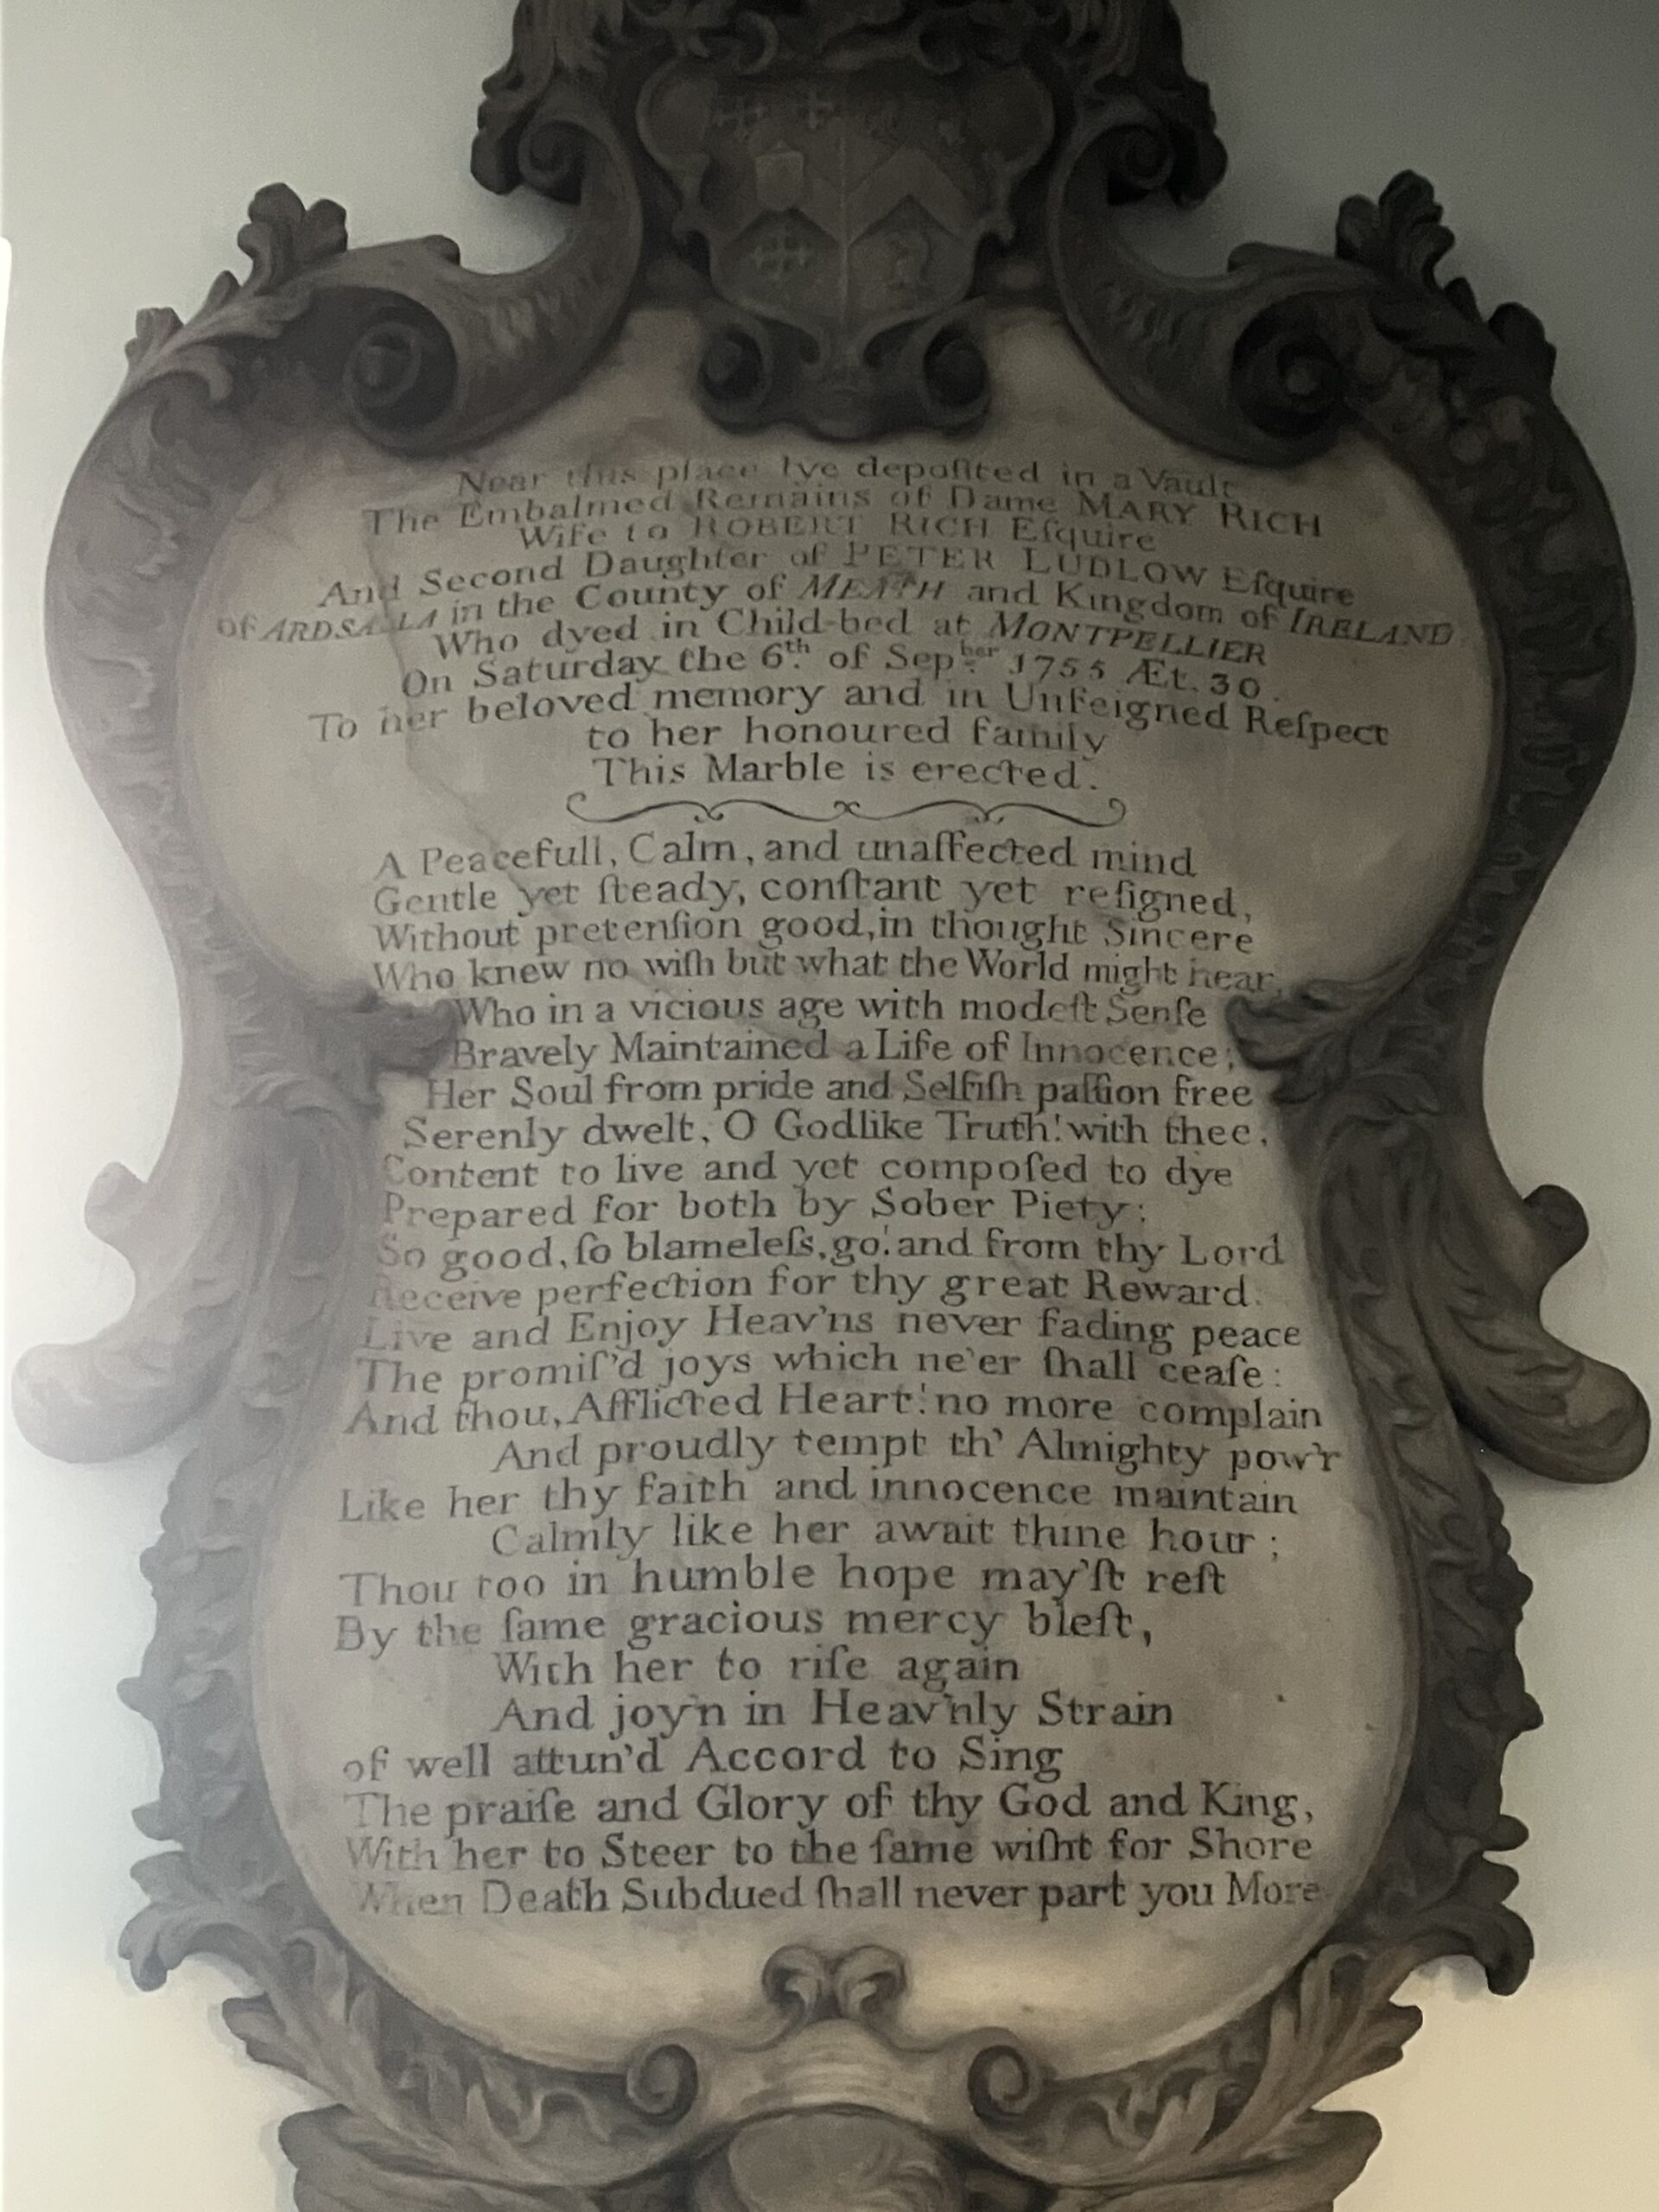 Near this place lye depoſited in a Vault
The Embalmed Remains of Dame MARY RICH
Wife to ROBERT RICH Eſquire
And Second Daughter of PETER LUDLOW Eſquire
Of ARDSALLA in the County of MEATH and Kingdom of IRELAND
Who dyed in Child-bed at MONTPELLIER
On Saturday the 6th. of Sepber. 1755 Æt. 30.
To her beloved memory and in Unfeigned Reſpect
to her honoured family
This Marble is erected.
A Peacefull, Calm, and unaffected mind
Gentle yet ſteady, conſtant yet reſigned,
Without pretenſion good, in thought Sincere
Who knew no wiſh but what the World might hear,
Who in a vicious age with modeſt Senſe
Bravely Maintained a Life of Innocence;
Her Soul from pride and Selfiſh paſſion free
Serenly dwelt, O Godlike Truth! with thee.
Content to live and yet compoſed to dye
Prepared for both by Sober Piety;
So good, ſo blameleſs, go! and from thy Lord
Receive perfection for thy great Reward.
Live and Enjoy Heav'ns never fading peace
The promiſ'd joys which ne'er ſhall ceaſe:
And thou, Afflicted Heart! no more complain
And proudly tempt th' Almighty pow'r
Like her thy faith and innocence maintain
Calmly like her await thine hour;
Thou too in humble hope may'ſt reſt
By the ſame gracious mercy bleſt,
With her to riſe again
And joy'n in Heav'nly Strain
of well attun'd Accord to Sing
The praiſe and Glory of thy God and King,
With her to Steer to the ſame wiſht for Shore
When Death Subdued ſhall never part you More